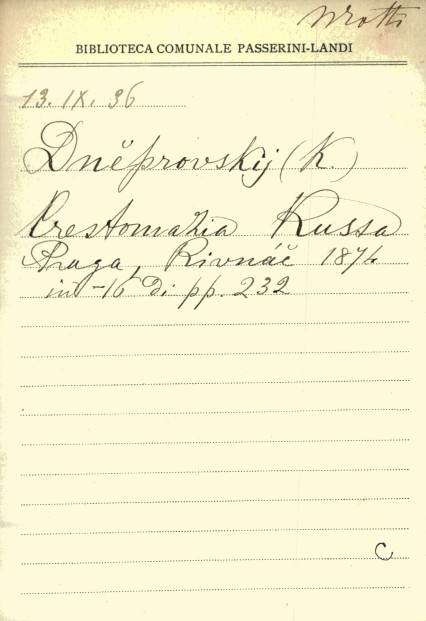 BIBLIOTECA COMUNALE PASSERINI-LANDI
13. IX. 36
Dněprovskij (K.)
Crestomazia Russa
Praga, Rivnáč
in-16 di pp. 232
C